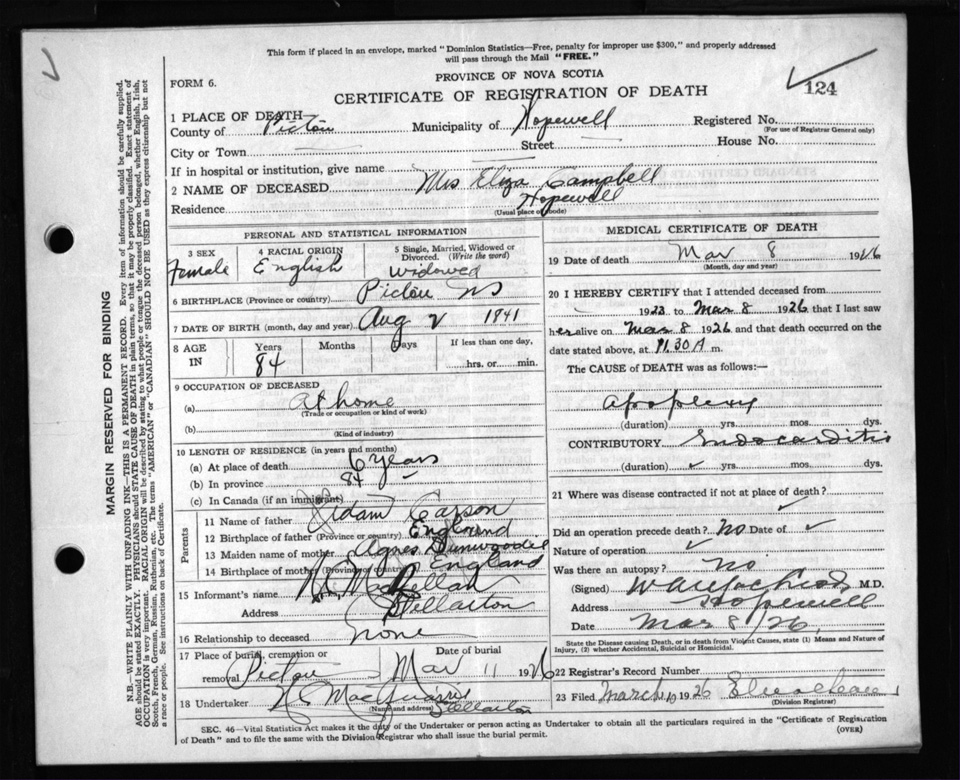 This form if placed in an envelope, marked "Dominion Statistics—Free, penalty for improper use $300," and properly addressed
will pass through the Mail "FREE."
FORM 6.
PROVINCE OF NOVA SCOTIA
CERTIFICATE OF REGISTRATION OF DEATH
124
1 PLACE OF DEATH—
County of Pictou Municipality of Hopewell Registered No.
(For use of Registrar General only)
City or Town Street House No.
If in hospital or institution, give name
2 NAME OF DECEASED Mrs. Eliza Campbell
Residence Hopewell
(Usual place of abode)
PERSONAL AND STATISTICAL INFORMATION
3 SEX 4 RACIAL ORIGIN 5 Single, Married, Widowed or Divorced. (Write the word)
Female English widowed
6 BIRTHPLACE (Province or country) Pictou NS
7 DATE OF BIRTH (month, day and year) Aug 2 1841
8 AGE IN Years Months Days If less than one day,
84 hrs. or min.
9 OCCUPATION OF DECEASED
(a) At home
(Trade or occupation or kind of work)
(b)
(Kind of industry)
10 LENGTH OF RESIDENCE (in years and months)
(a) At place of death 6 years
(b) In province 84
(c) In Canada (if an immigrant)
Parents
11 Name of father Adam Carson
12 Birthplace of father (Province or country) England
13 Maiden name of mother Agnes Dunwoodie
14 Birthplace of mother (Province or country) England
15 Informant's name
Address Stellarton
16 Relationship to deceased none
17 Place of burial, cremation or removal Pictou Date of burial Mar 11 1926
18 Undertaker
(Name and address) Stellarton
MEDICAL CERTIFICATE OF DEATH
19 Date of death Mar 8 1926
(Month, day and year)
20 I HEREBY CERTIFY that I attended deceased from
1923 to Mar 8 1926 that I last saw
her alive on Mar 8 1926 and that death occurred on the
date stated above, at 11.30 A m.
The CAUSE of DEATH was as follows:—
apoplexy
(duration) yrs. mos. dys.
CONTRIBUTORY Endocarditis
(duration) yrs. mos. dys.
21 Where was disease contracted if not at place of death?
Did an operation precede death? No Date of
Nature of operation
Was there an autopsy? no
(Signed) M.D.
Address Hopewell
Date Mar 8/26
State the Disease causing Death, or in death from Violent Causes, state (1) Means and Nature of
Injury, (2) whether Accidental, Suicidal or Homicidal.
22 Registrar's Record Number
23 Filed March 1926
(Division Registrar)
SEC. 46—Vital Statistics Act makes it the duty of the Undertaker or person acting as Undertaker to obtain all the particulars required in the "Certificate of Registration
of Death" and to file the same with the Division Registrar who shall issue the burial permit.
(OVER)
MARGIN RESERVED FOR BINDING
N.B.—WRITE PLAINLY WITH UNFADING INK—THIS IS A PERMANENT RECORD. Every item of information should be carefully supplied.
AGE should be stated EXACTLY. PHYSICIANS should STATE CAUSE OF DEATH in plain terms, so that it may be properly classified. Exact statement of
OCCUPATION is very important. RACIAL ORIGIN will be described by stating to what people or tongue the deceased person belonged, whether English, Irish,
Scotch, French, German, Russian, Ruthenian, etc. The terms "AMERICAN" or "CANADIAN" SHOULD NOT BE USED as they express citizenship but not
a race or people. See instructions on back of Certificate.